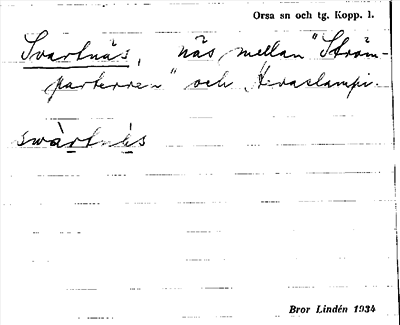 Orsa sn och tg. Kopp. l.
Svartnäs, näs mellan "Ström-
parterren" och Hvaslampi.
swàrtnès
Bror Lindén 1934